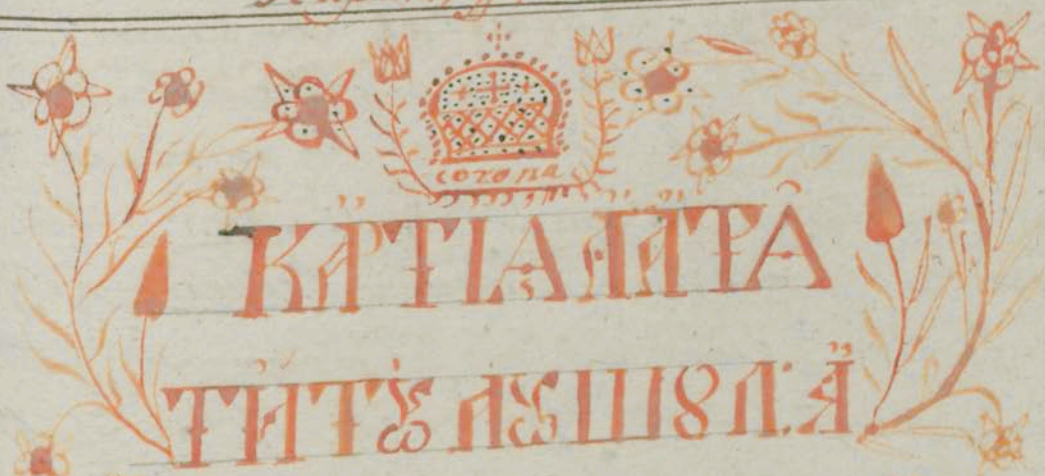 corona
КАРТІА ПАТРА
ТИТꙊЛꙊШꙊЛ: А